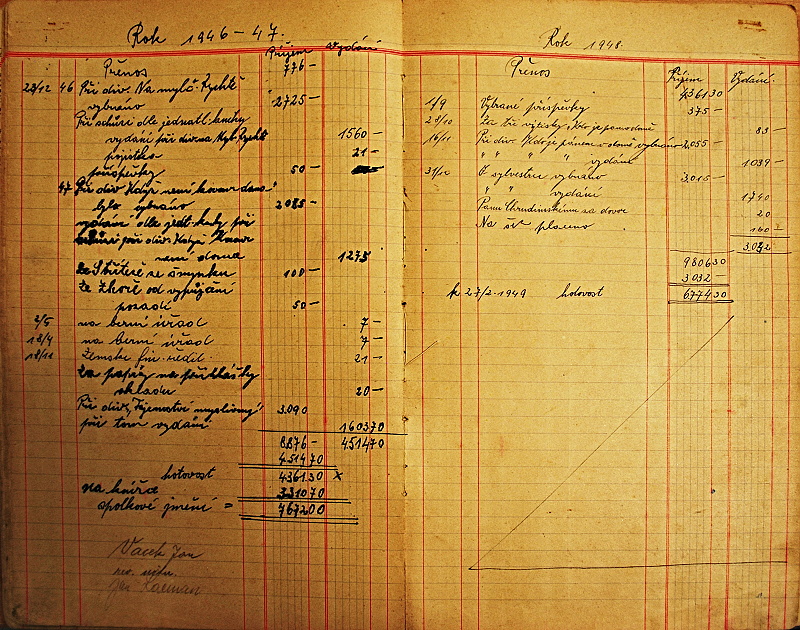 Rok 1946-47.
Příjem Vydání
Přenos 776-
28/12 46 Při div. Na mylš. Rychtě
vybráno 2725-
Při schůzi dle jednatl. knihy
vydání při diva na Kyb. Rychtě 1560-
pojistka 21-
příspěvky 50-
47 Při div. Když není kocour doma"
bylo vybráno 2085-
vydání dle jedt. knihy při
schůzi při div. Když Kocour
není doma 1275
Ze Střítěže se smyku 100-
Ze Zhoře od vypůjčání
pozadí 50-
2/5 na berní úřad 7-
18/4 na berní úřad 7-
18/11 Zemské fin. ředit. 21-
Za papír na přihlášky
skladu 20-
Při div. Tajemství myslivny" 3.090
při tom vydání 160370
8876- 451470
451470
hotovost 436130 x
na knížce 331070
spolkové jmění = 767200
Vacek Jan
Jan
Rok 1948.
Přenos Příjem Vydání.
436130
1/9 Vybrané příspěvky 375-
28/10 Za tři výtisky 83-
16/11 Při div. Kdo je pánem v domě vybráno 2,055-
" " " " vydání 1039-
31/12 O sylvestru vybráno 3,015-
" " vydání 1740
Panu Chrudimskému za dovoz 20
Na šít placeno 160-
3032-
980630
3032-
k 27/2. 1949 hotovost 677430